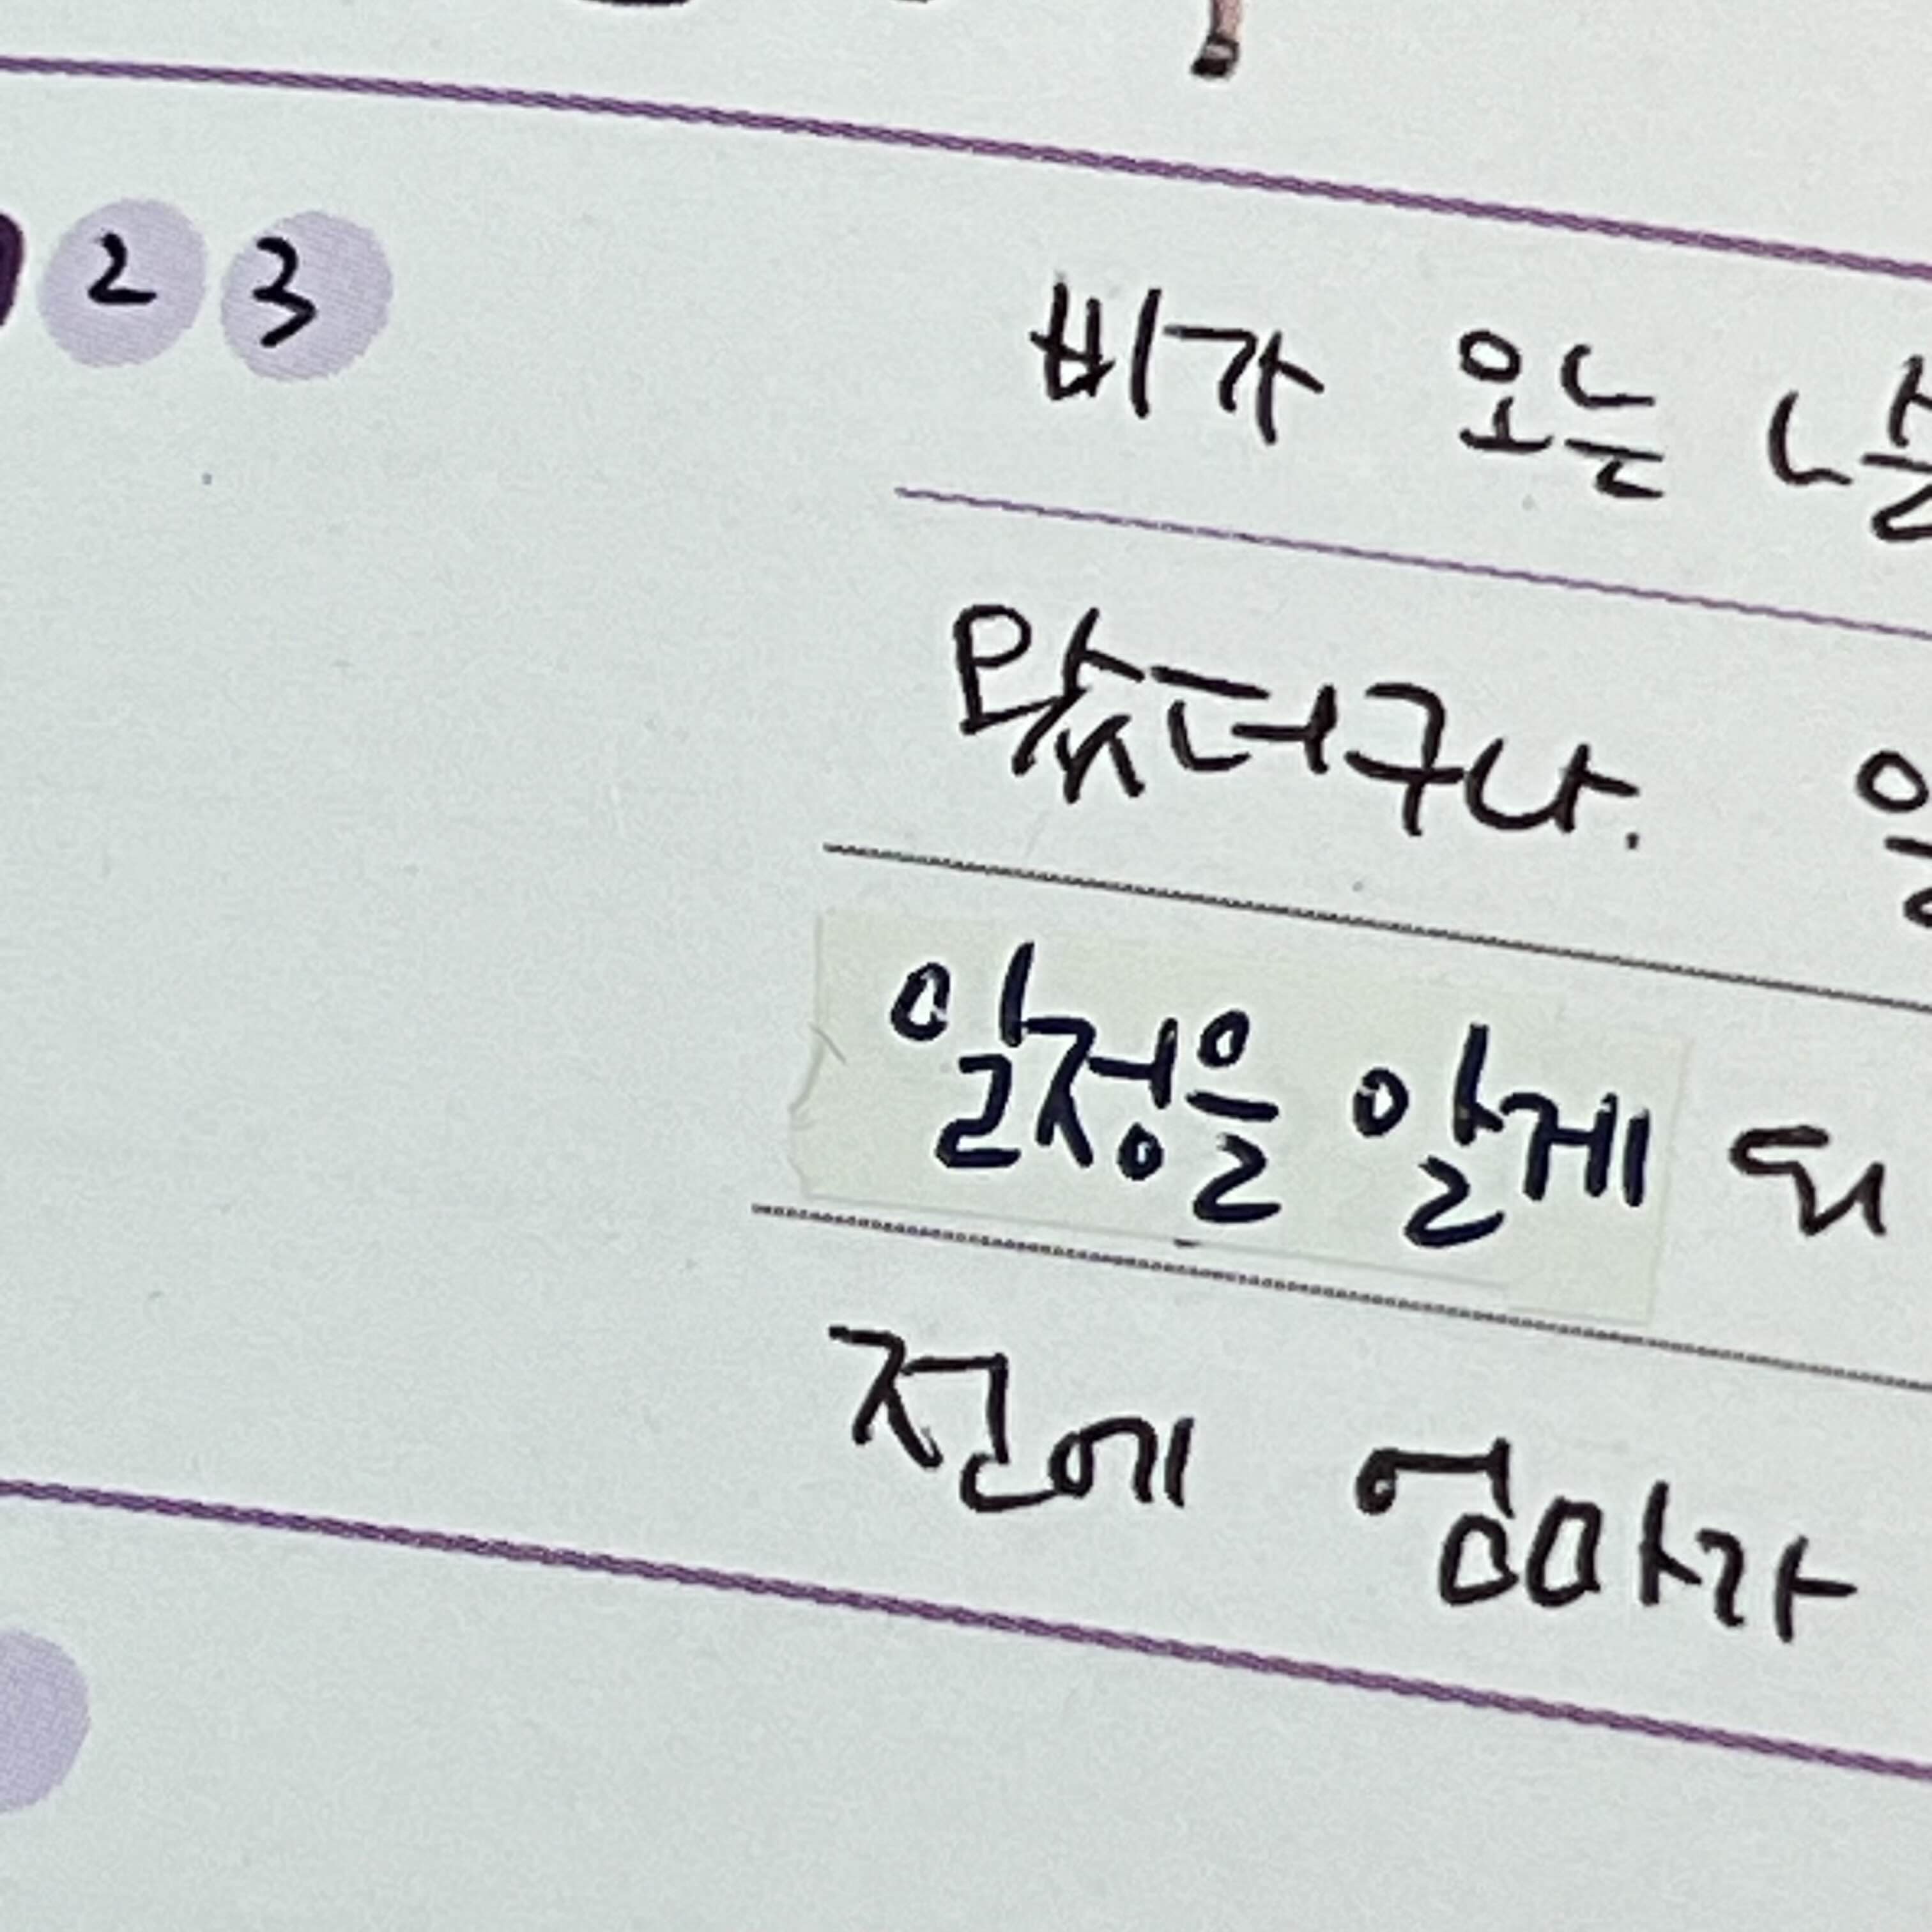 2 3
비가 오는
많더구나.
일정을 알게 되
전에 엄마가